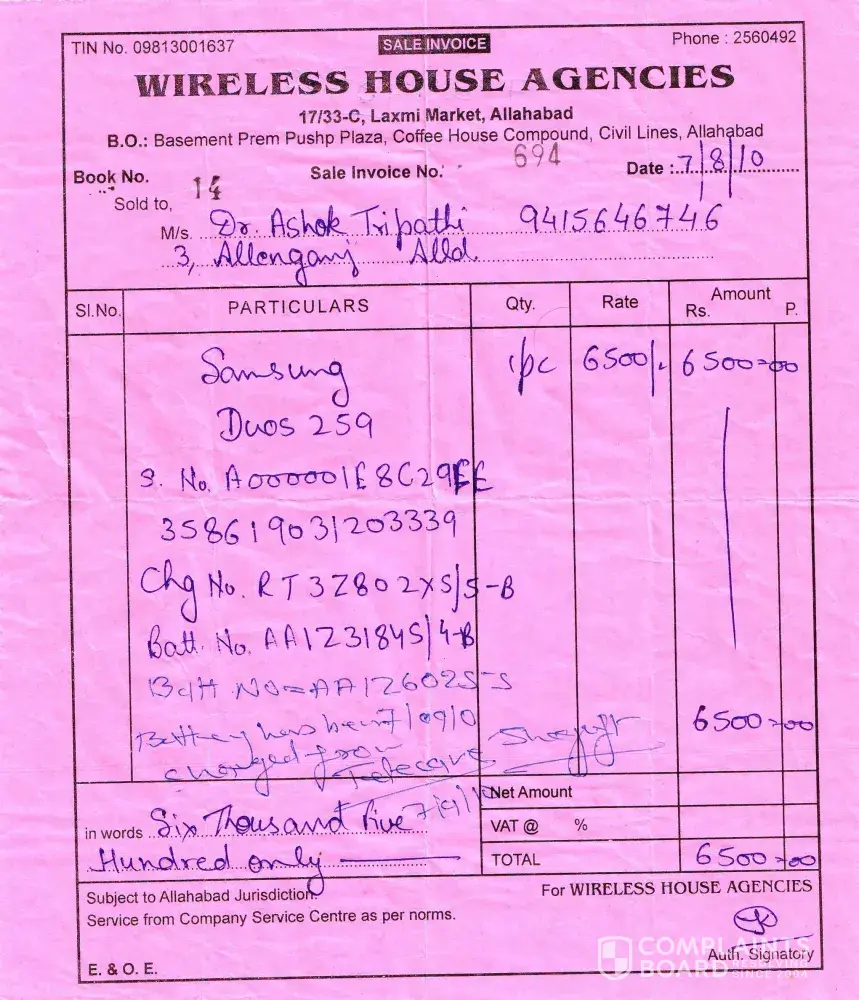 TIN No. 09813001637 SALE INVOICE Phone : 2560492
WIRELESS HOUSE AGENCIES
17/33-C, Laxmi Market, Allahabad
B.O.: Basement Prem Pushp Plaza, Coffee House Compound, Civil Lines, Allahabad
Book No. 14 Sale Invoice No. 694 Date : 7/8/10
Sold to,
M/s. Dr. Ashok Tripathi 9415646746
3, Allenganj Alld.
Sl.No. PARTICULARS Qty. Rate Amount
Rs. P.
Samsung 1pc 6500/- 6500=00
Duos 259
S. No. A000001E8C29EE
358619031203339
Chg No. RT3Z802XS/5-B
Batt. No. AA1Z3184S/4-B
Batt NO=AA1Z602S-S
Battery has been 7/09/0 6500=00
changed from Telecare
7/9/10
Net Amount
in words Six Thousand Five VAT @ %
Hundred only TOTAL 6500=00
Subject to Allahabad Jurisdiction. For WIRELESS HOUSE AGENCIES
Service from Company Service Centre as per norms.
Auth. Signatory
E. & O. E.
COMPLAINTS
BOARD
SINCE 2004